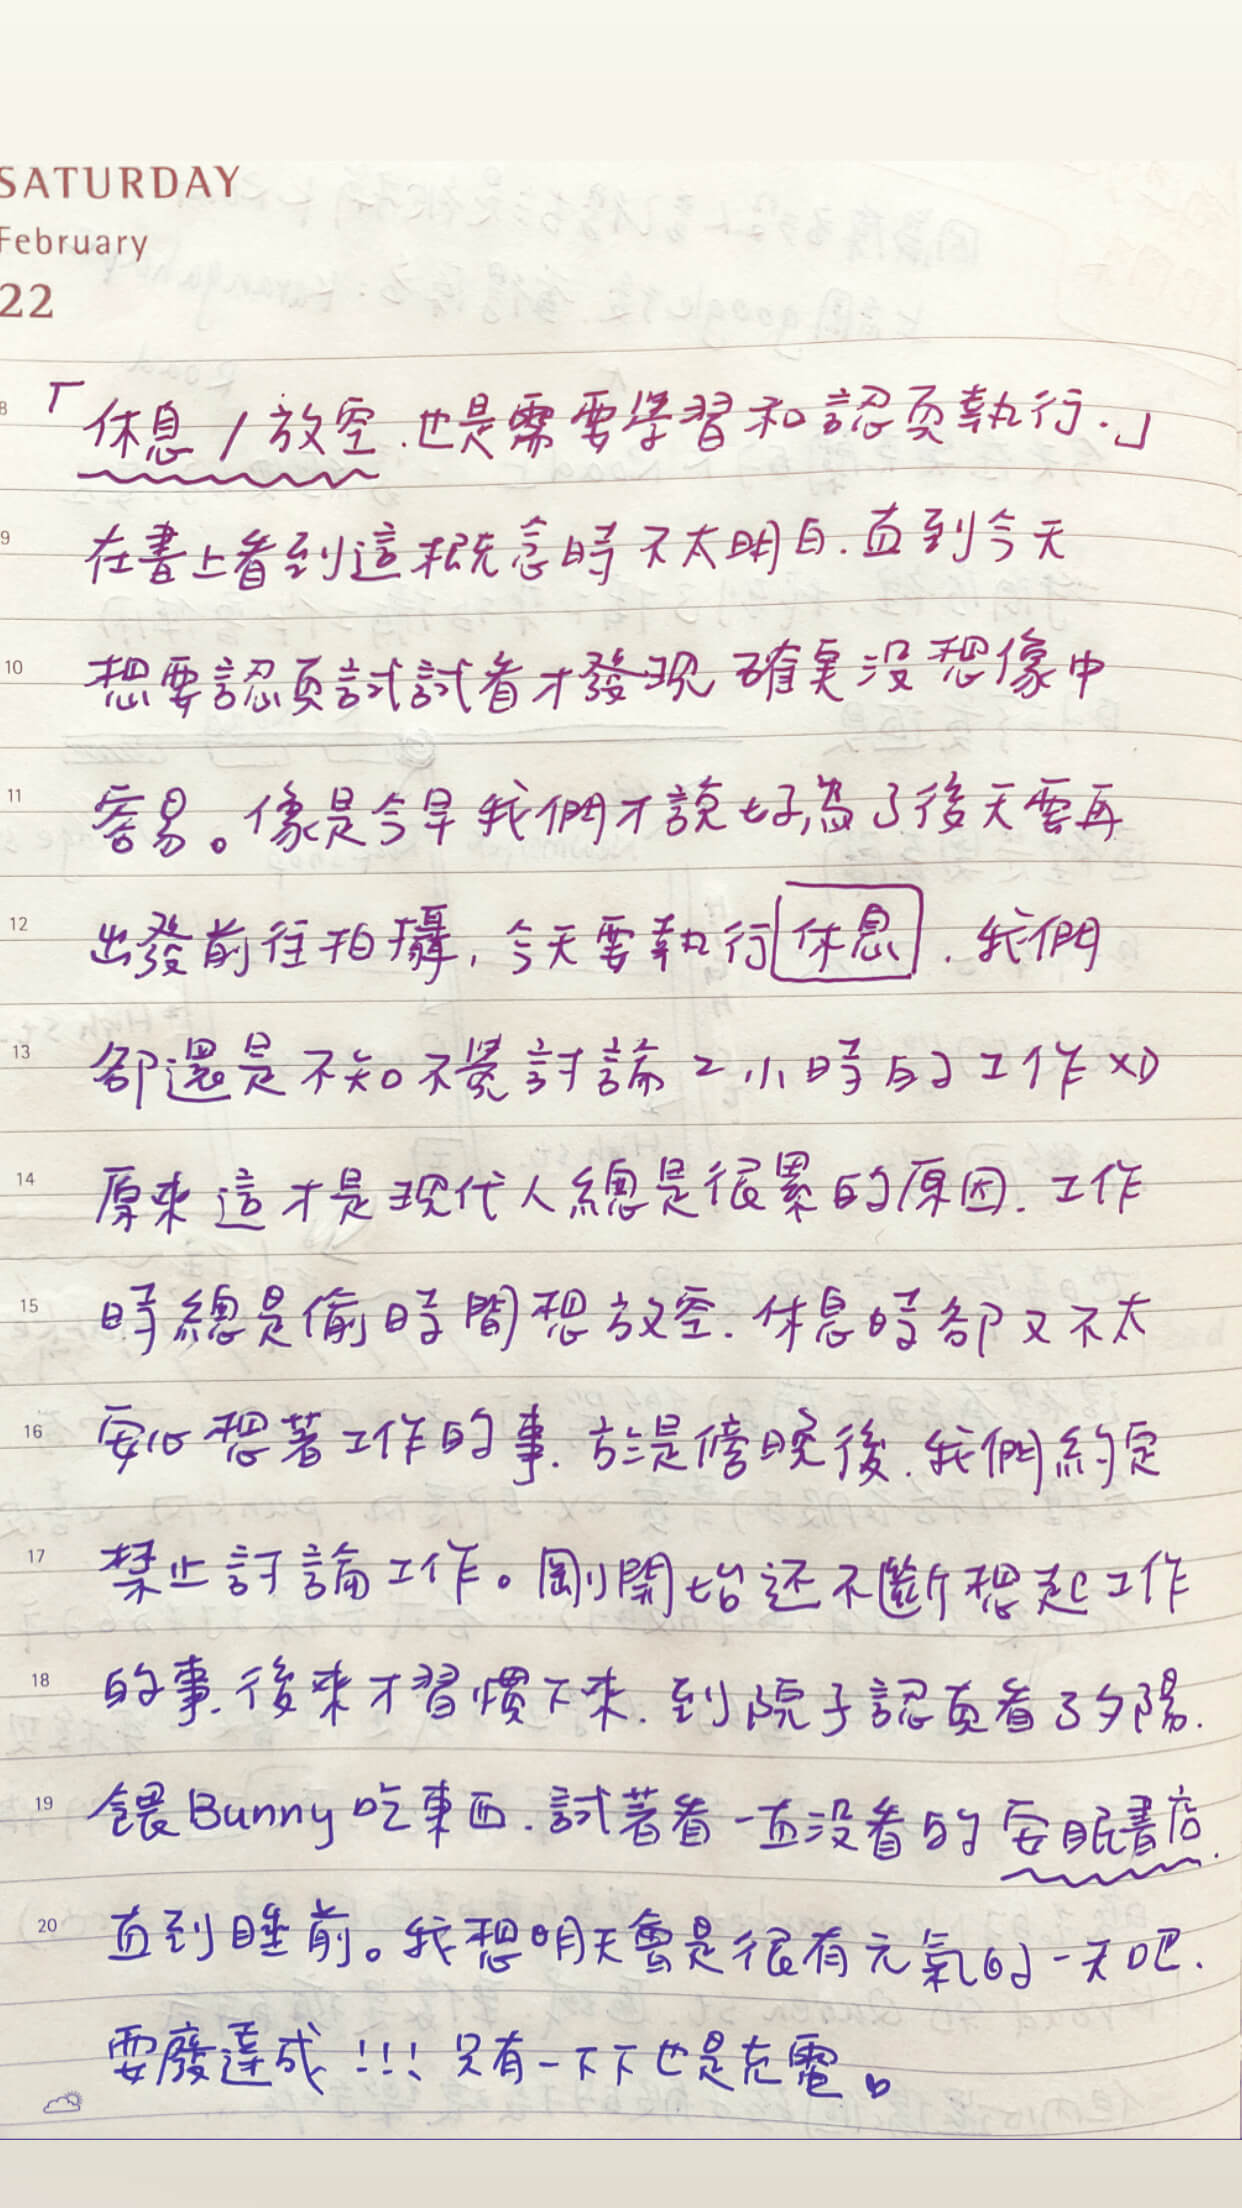 SATURDAY
February
22
8 「休息/放空.也是需要學習和認真執行.」
9 在書上看到這概念時不太明白.直到今天
10 想要認真試試看才發現確實沒想像中
11 容易。像是今早我們才說好,為了後天要再
12 出發前往拍攝,今天要執行休息.我們
13 卻還是不知不覺討論2小時的工作XD
14 原來這才是現代人總是很累的原因.工作
15 時總是偷時間想放空.休息時卻又不太
16 安心想著工作的事.於是傍晚後.我們約定
17 禁止討論工作。剛開始还不斷想起工作
18 的事.後來才習慣下來.到院子認真看了夕陽.
19 餵Bunny吃東西.試著看一直沒看的安眠書店.
20 直到睡前。我想明天會是很有元氣的一天吧.
耍廢達成!!!只有一下下也是充電。